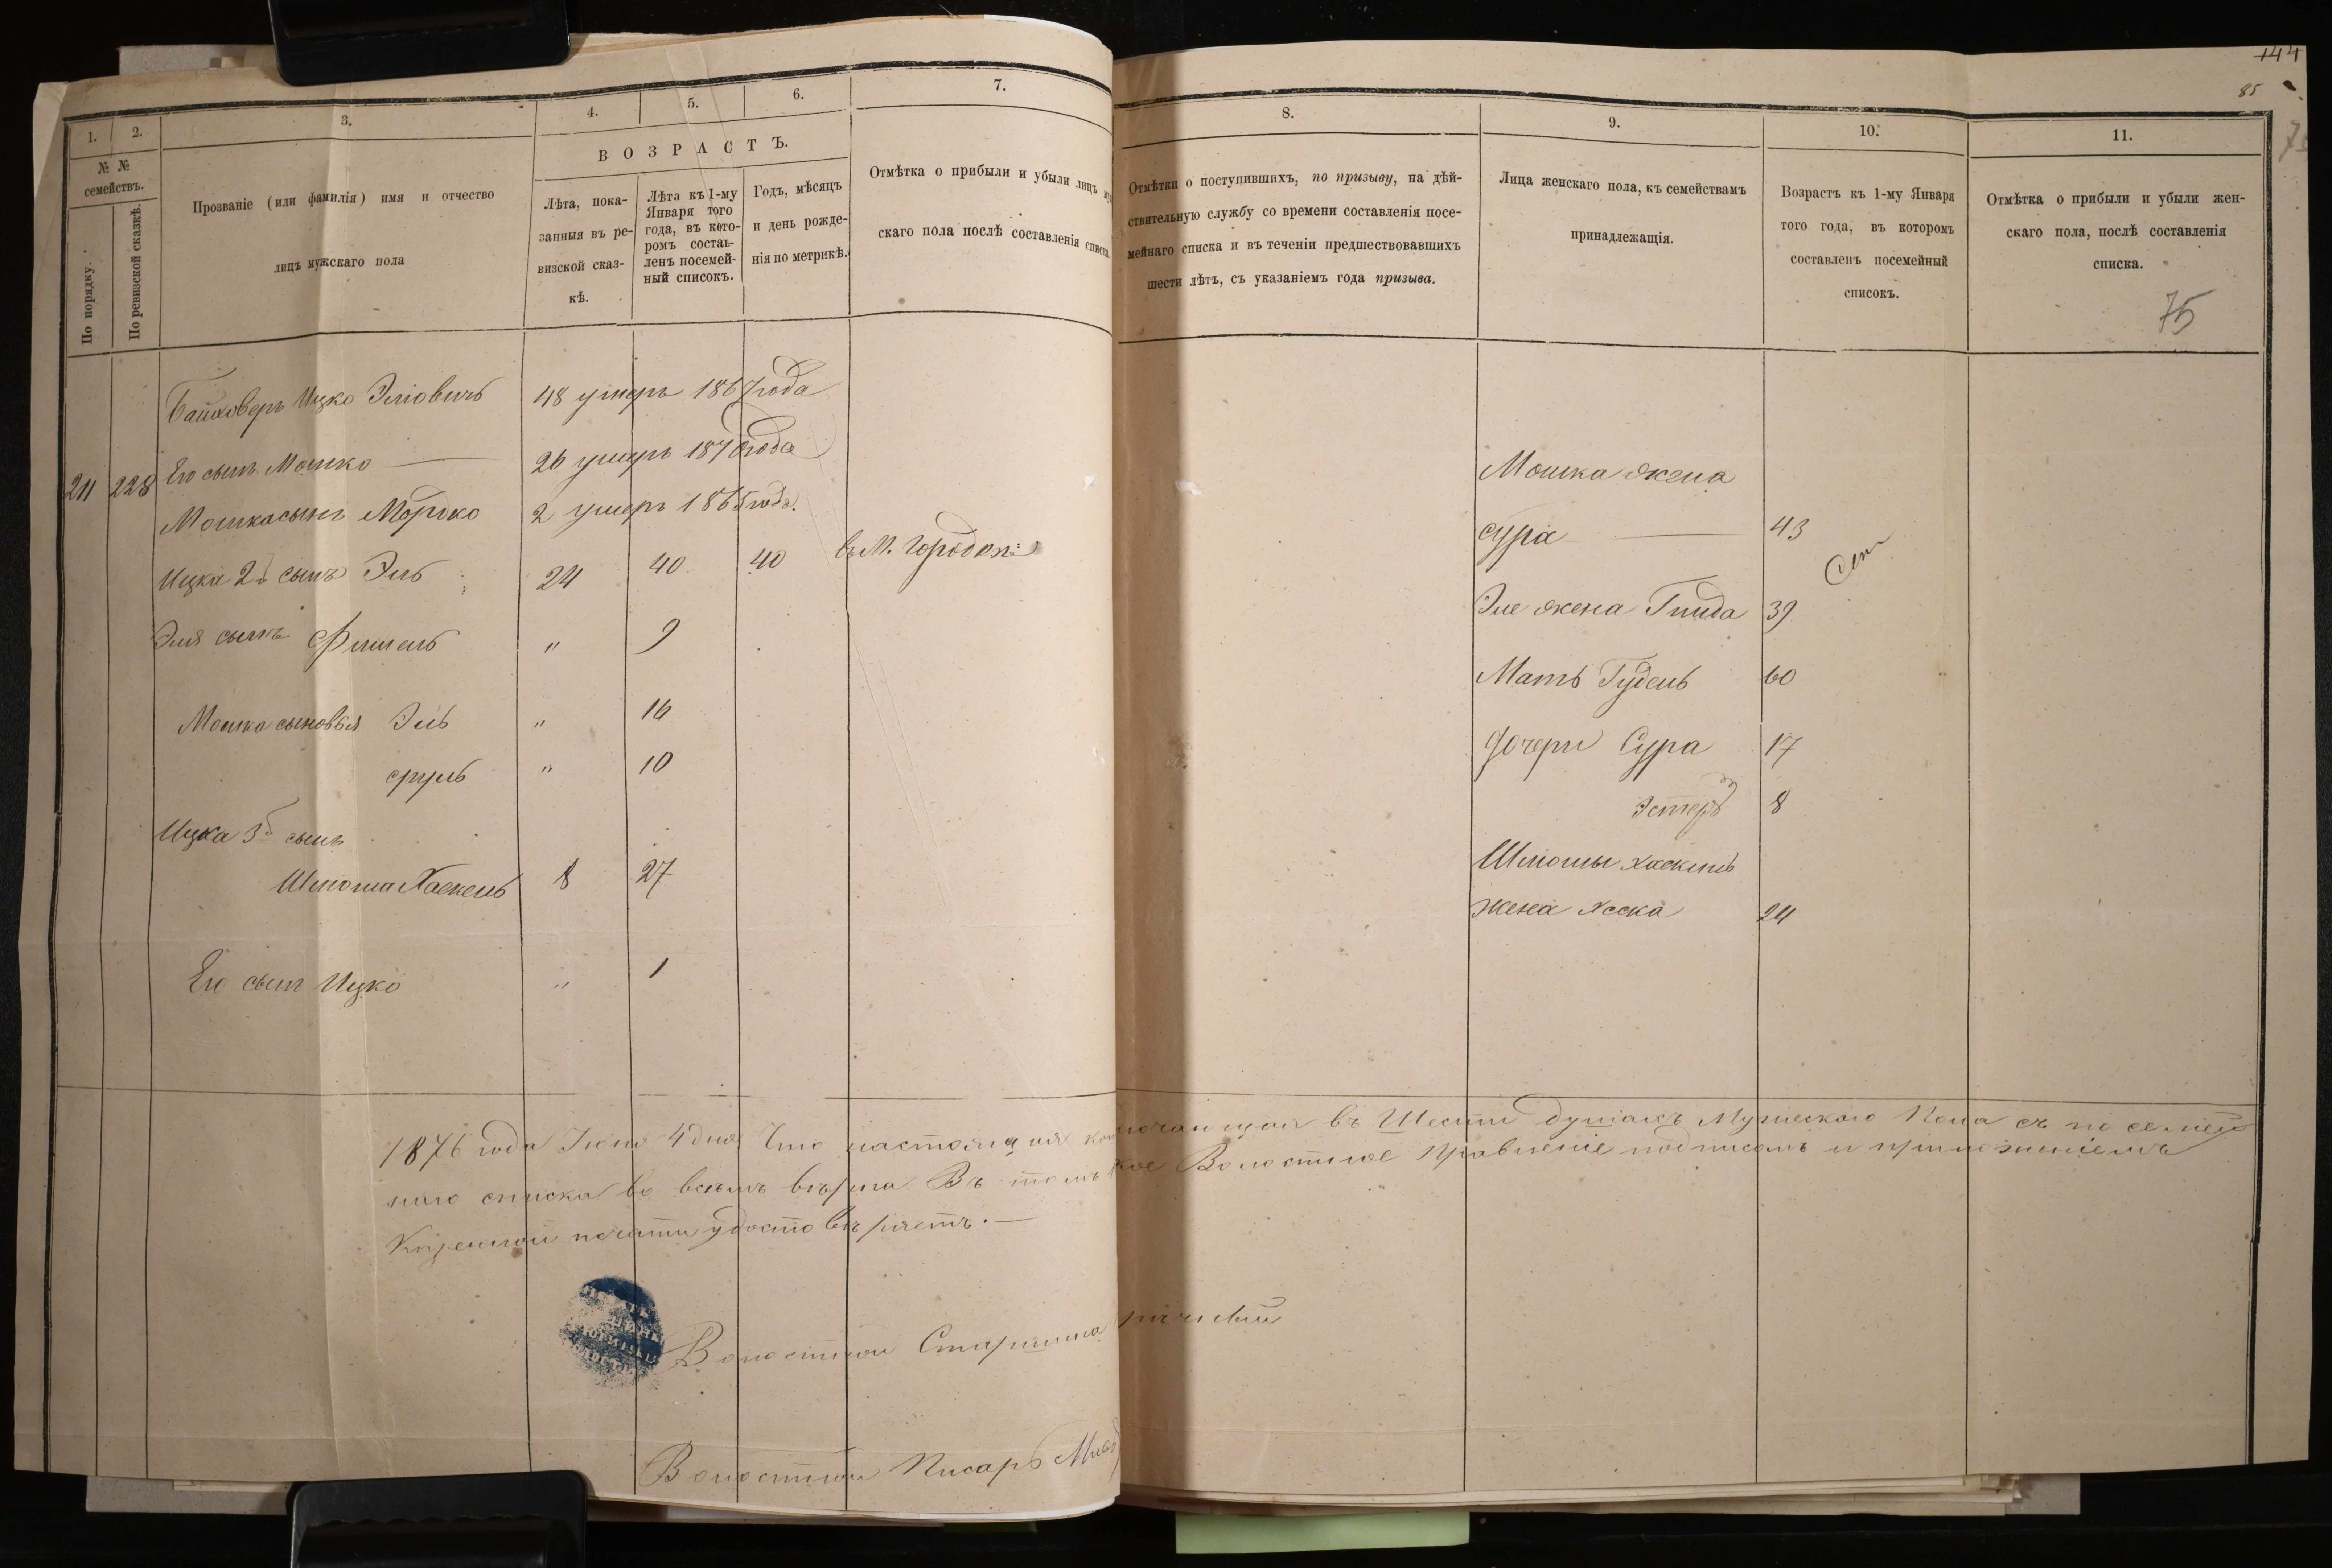 144
85
75
1.
2.
3.
4.
5.
6.
7.
8.
9.
10.
11.
№ №
семействъ.
По порядку.
По ревизской сказкѣ.
Прозваніе (или фамилія) имя и отчество
лицъ мужскаго пола
ВОЗРАСТЪ.
Лѣта, пока-
занныя въ ре-
визской сказ-
кѣ.
Лѣта къ 1-му
Января того
года, въ кото-
ромъ состав-
ленъ посемей-
ный список.
Годъ, мѣсяцъ
и день рожде-
нія по метрикѣ.
Отмѣтка о прибыли и убыли лицъ му
скаго пола послѣ составленія списка
Отмѣтки о поступившихъ, по призыву, на дѣй-
ствительную службу со времени составленія посе-
мейнаго списка и въ теченіи предшествовавшихъ
шести лѣтъ, съ указаніемъ года призыва.
Лица женскаго пола, къ семействамъ
принадлежащія.
Возрастъ къ 1-му Января
того года, въ которомъ
составленъ посемейный
списокъ.
Отмѣтка о прибыли и убыли жен-
скаго пола, послѣ составленія
списка.
Ицко Эліовичъ 48 умеръ 1867 года
211 228 Его сынъ Мошко 26 умеръ 1870 года
Мошка жена
Мошка сынъ Мордко 2 умеръ 1865 года.
Сура 43
Ицка 2й сынъ Эль 24 40 40 въ М. Городк:
Эле жена Гинда 39
Эля сынъ Фишель " 9
Мать Гудель 60
Мошка сыновья Эль " 16
Дочери Сура 17
Сруль " 10
Эстеръ 8
Ицка 3й сынъ
Шліома Хаскель 8 27
Шліомы Хаскель
жена Хаска 24
Его сынъ Ицко " 1
1876 года Іюня 4 дня Что настоящая копія въ Шести душахъ Мужескаго Пола съ посемей
наго списка во всемъ вѣрна. Въ томъ Волостное Правленіе подписомъ и приложеніемъ
Казенной печати удостовѣряетъ.
Волостной Старшина
Волостной Писарь